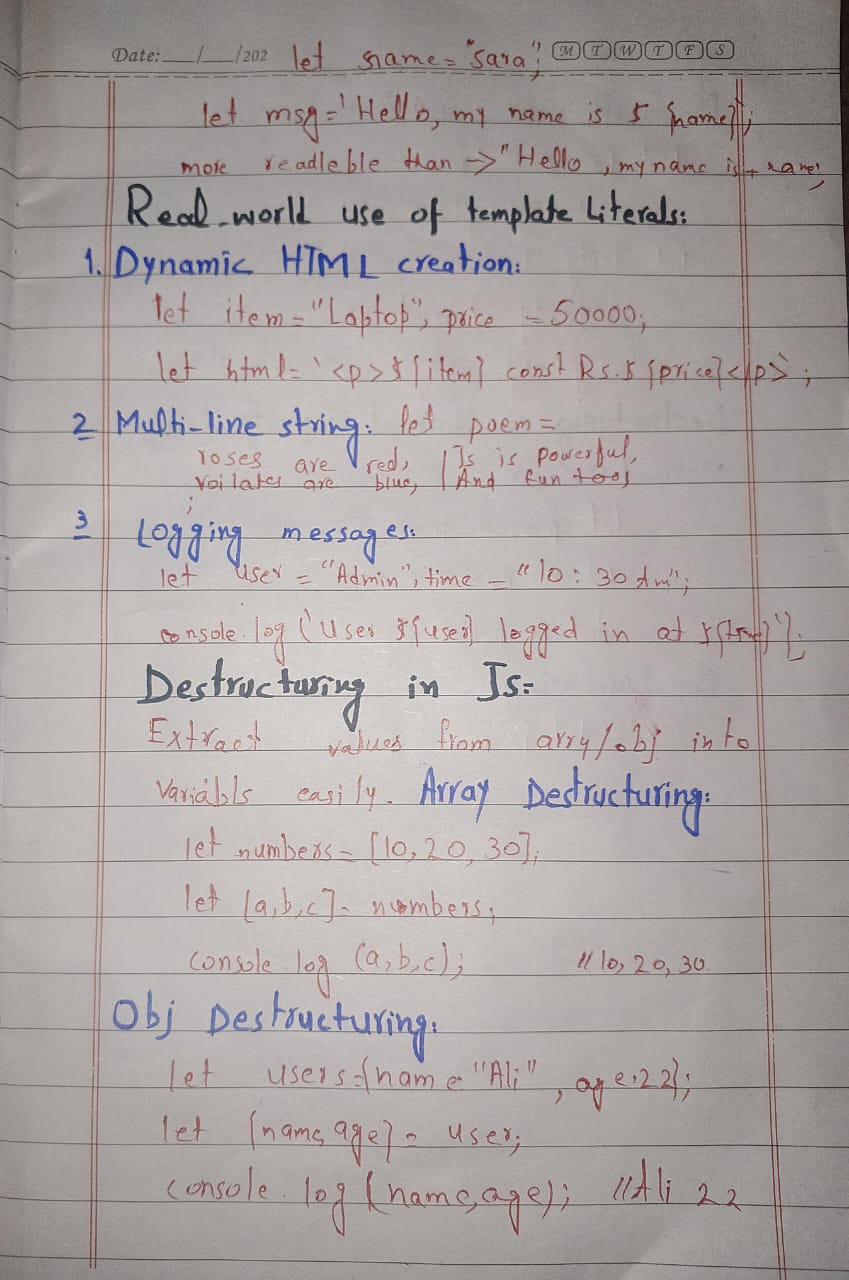 Date: __/__/202 let name = "Sara"; M T W T F S
let msg = 'Hello, my name is $ {name}';
more readleble than -> "Hello, my name is" + name;
Real-world use of template Literals:
1. Dynamic HTML creation:
let item = "Laptop", price = 50000;
let html = `<p>${item} const Rs. ${price}</p>`;
2 Multi-line string: let poem =
roses are red, | Js is powerful,
voilates are blue, | And fun too;
;
3 Logging messages:
let user = "Admin", time = "10:30 Am";
console.log (`User ${user} logged in at ${time}`);
Destructuring in Js:-
Extract values from arry/obj into
Variabls easily. Array Destructuring:
let numbers = [10, 20, 30];
let [a,b,c] = numbers;
console.log (a,b,c); // 10, 20, 30.
Obj Destructuring:
let users = {name = "Ali", age:22};
let {name, age} = user;
console.log (name, age); // Ali 22